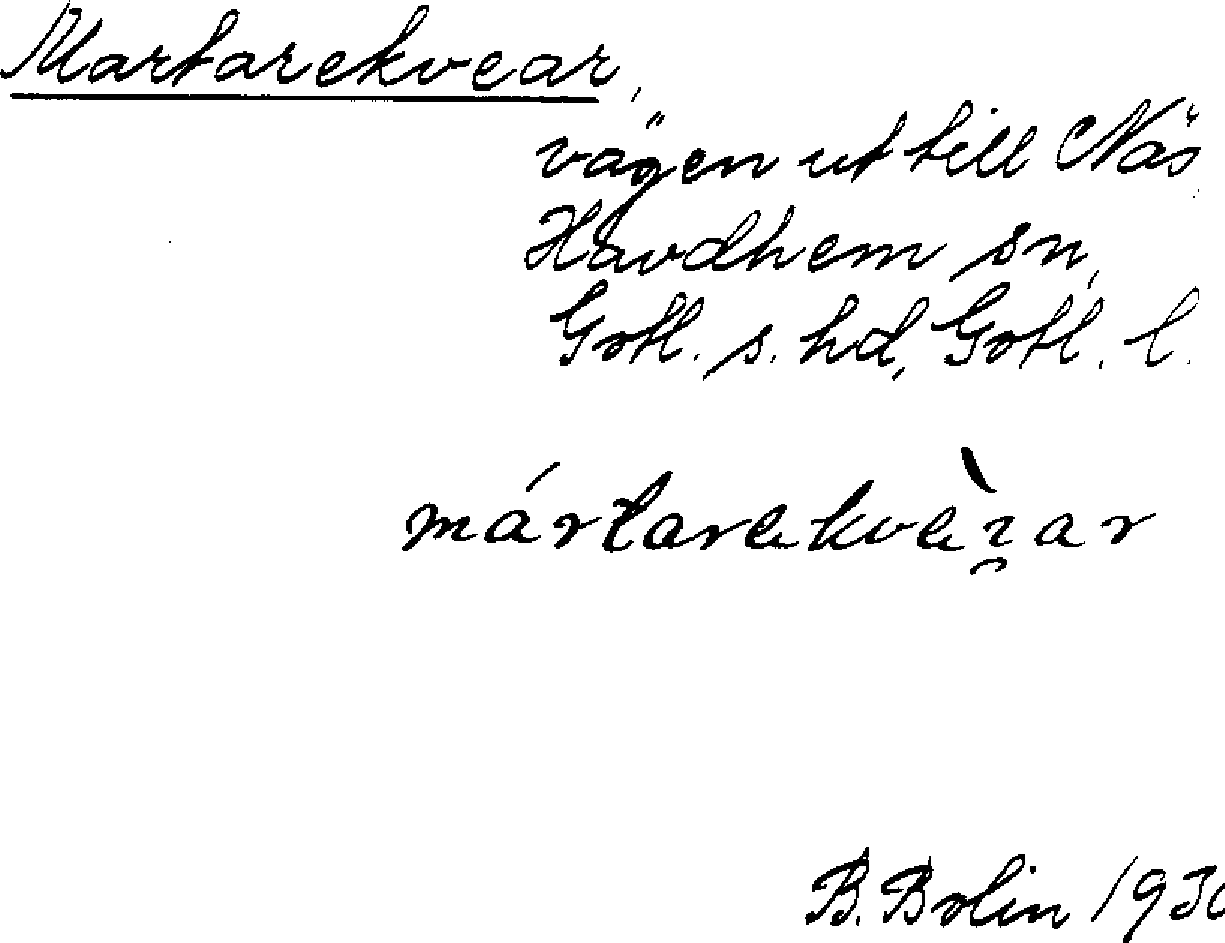 Martarekvear,
vägen ut till Näs
Havdhem sn,
Gotl. s. hd, Gotl. l.
B. Bolin 193